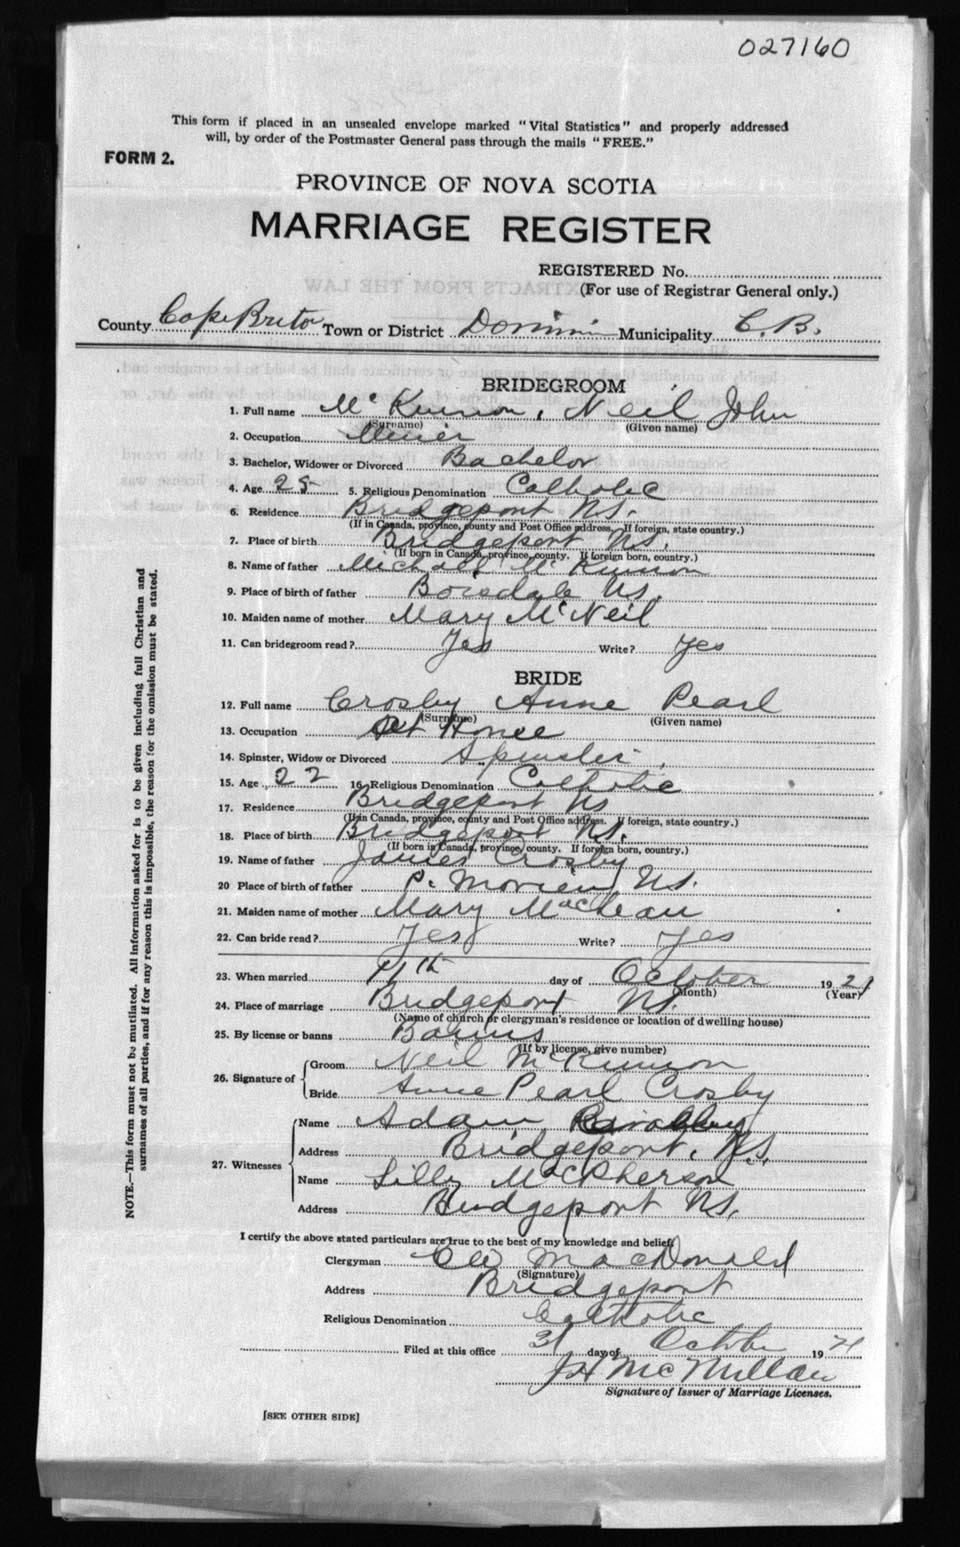 027160
This form if placed in an unsealed envelope marked "Vital Statistics" and properly addressed
will, by order of the Postmaster General pass through the mails "FREE."
FORM 2.
PROVINCE OF NOVA SCOTIA
MARRIAGE REGISTER
REGISTERED No.
(For use of Registrar General only.)
County Cape Breton Town or District Dominion Municipality C. B.
BRIDEGROOM
1. Full name McKinnon, Neil John
(Surname) (Given name)
2. Occupation Miner
3. Bachelor, Widower or Divorced Bachelor
4. Age 25 5. Religious Denomination Catholic
6. Residence Bridgeport N.S.
(If in Canada, province, county and Post Office address. If foreign, state country.)
7. Place of birth Bridgeport N.S.
(If born in Canada, province, county. If foreign born, country.)
8. Name of father Michael McKinnon
9. Place of birth of father Boisdale N.S.
10. Maiden name of mother Mary McNeil
11. Can bridegroom read? Yes Write? Yes
BRIDE
12. Full name Crosby Anne Pearl
(Surname) (Given name)
13. Occupation At Home
14. Spinster, Widow or Divorced Spinster
15. Age 22 16. Religious Denomination Catholic
17. Residence Bridgeport NS
(If in Canada, province, county and Post Office address. If foreign, state country.)
18. Place of birth Bridgeport N.S.
(If born in Canada, province, county. If foreign born, country.)
19. Name of father James Crosby
20 Place of birth of father P. Morien N.S.
21. Maiden name of mother Mary MacLean
22. Can bride read? Yes Write? Yes
23. When married day of October 1921
(Month) (Year)
24. Place of marriage Bridgeport N.S.
(Name of church or clergyman's residence or location of dwelling house)
25. By license or banns Banns
(If by license, give number)
26. Signature of Groom Neil McKinnon
Bride Anne Pearl Crosby
27. Witnesses Name Adam
Address Bridgeport, N.S.
Name Lilly MacPherson
Address Bridgeport N.S.
I certify the above stated particulars are true to the best of my knowledge and belief,
Clergyman MacDonald
(Signature)
Address Bridgeport
Religious Denomination Catholic
Filed at this office 31 day of October 1921
McMillan
Signature of Issuer of Marriage Licenses.
[SEE OTHER SIDE]
NOTE.—This form must not be mutilated. All information asked for is to be given including full Christian and
surnames of all parties, and if for any reason this is impossible, the reason for the omission must be stated.